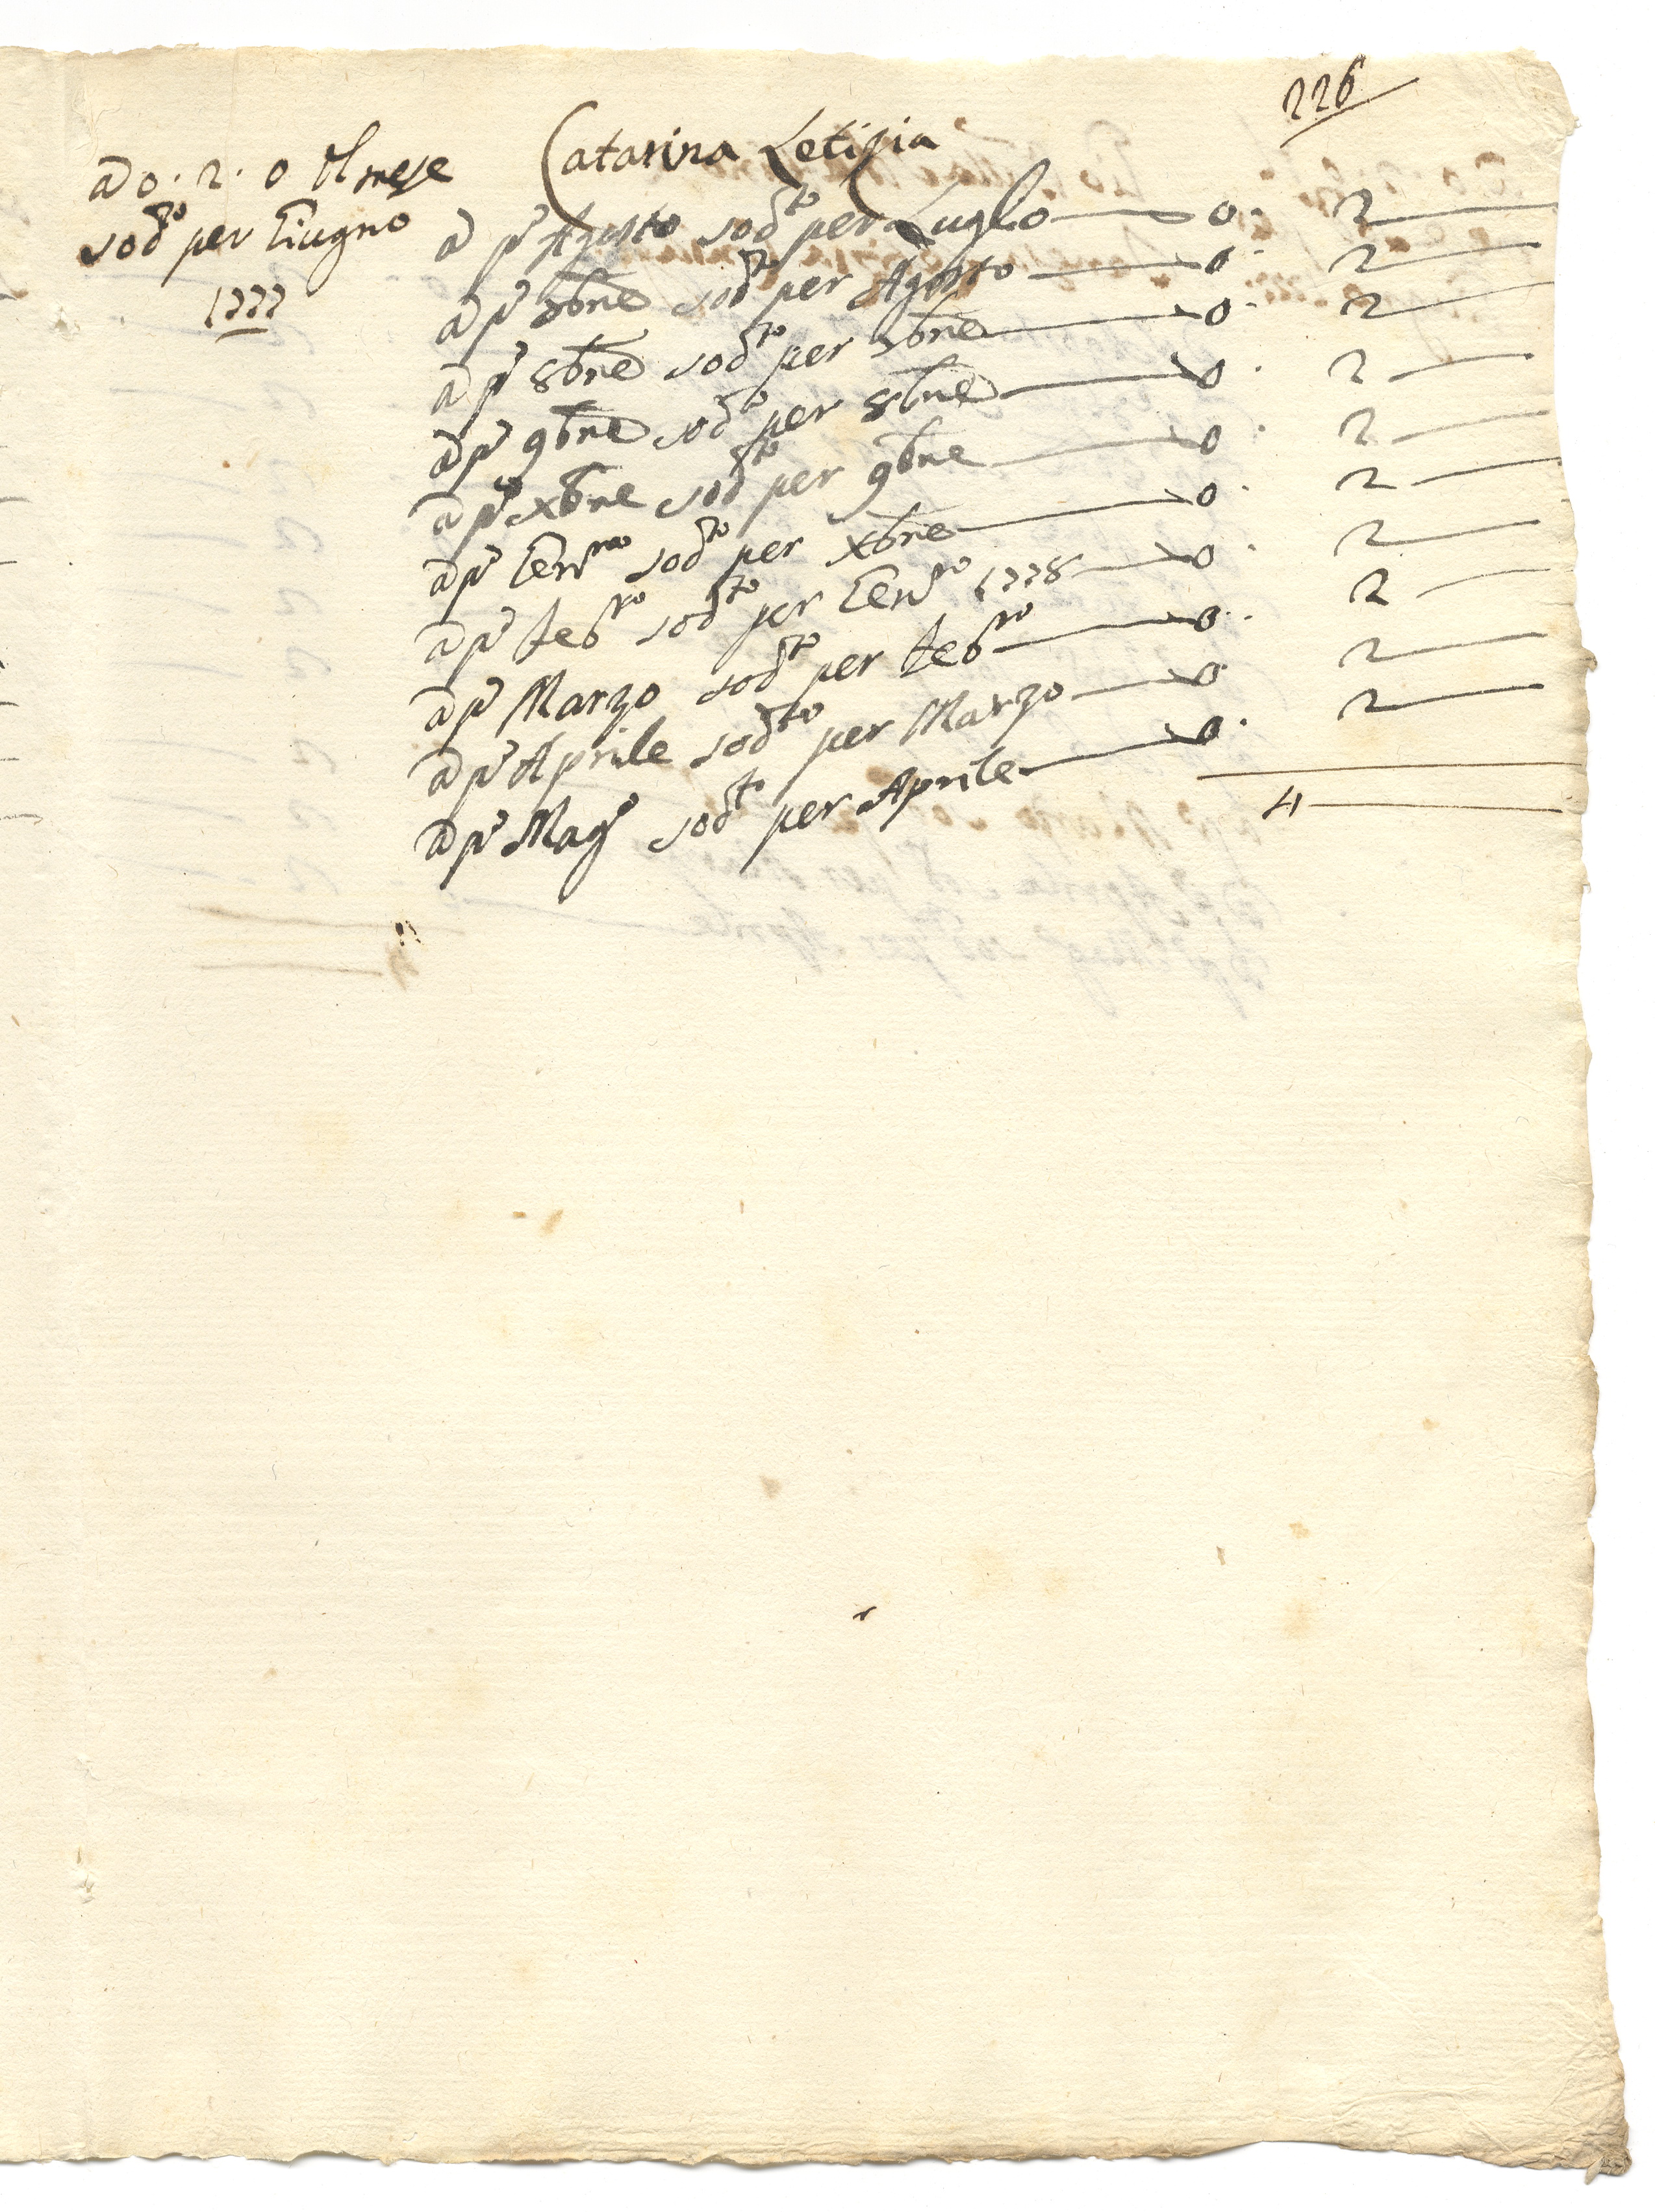 226
Catarina Letizia
a 0. 2. 0 Il mese
sodto per Giugno
1777
a pº Agosto sodto per Luglo — 0. 2 —
a pº 7bre sodto per Agosto — 0. 2 —
a pº 8bre sodto per 7bre — 0. 2 —
a pº 9bre sodto per 8bre — 0. 2 —
a pº xbre sodto per 9bre — 0. 2 —
a pº Genro sodto per xbre — 0. 2 —
a pº febro sodto per Genro 1778 — 0. 2 —
a pº Marzo sodto per febro — 0. 2 —
a pº Aprile sodto per Marzo — 0 2 —
a pº Magº sodto per Aprile — 0. 2 —
4 —